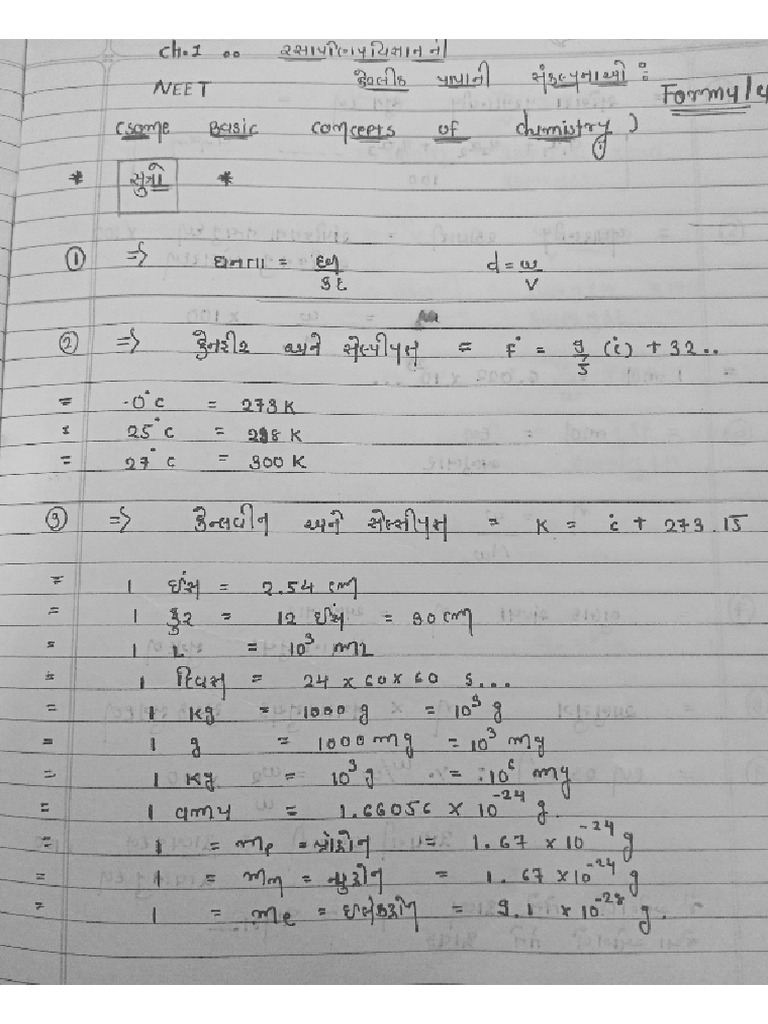 Ch.1 .. રસાયણવિજ્ઞાનની
NEET કેટલીક પાયાની સંકલ્પનાઓ : Formula
(some Basic concepts of chemistry)
* સુત્રો *
① => ઘનતા = દળ/કદ d = w/V
② => ફેરનહીટ અને સેલ્સીયસ = F° = 9/5 (°C) + 32..
= -0°C = 273 K
* 25°C = 298 K
= 27°C = 300 K
③ => કેલ્વીન અને સેલ્સીયસ = K = °C + 273.15
= 1 ઈંચ = 2.54 cm
= 1 ફુટ = 12 ઈંચ = 30 cm
= 1 L = 10³ mL
= 1 દિવસ = 24 x 60 x 60 s...
= 1 kg = 1000 g = 10³ g
= 1 g = 1000 mg = 10³ mg
= 1 kg = 10³ g = : 10⁶ mg
= 1 = 1.66056 x 10⁻²⁴ g.
= 1 = mp = પ્રોટોન = 1.67 x 10⁻²⁴ g
= 1 = mn = ન્યુટ્રોન = 1.67 x 10⁻²⁴ g
= 1 = me = ઈલેક્ટ્રોન = 9.1 x 10⁻²⁸ g.